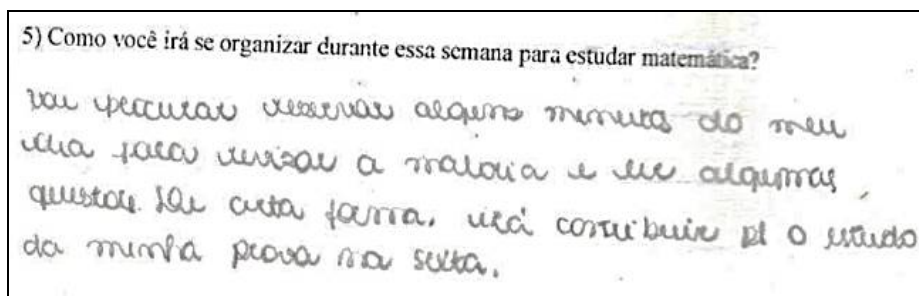 5) Como você irá se organizar durante essa semana para estudar matemática?
vou procurar reservar alguns minutos do meu
dia para revisar a matéria e ler algumas
questões. De certa forma, irá contribuir p/ o estudo
da minha prova na sexta.